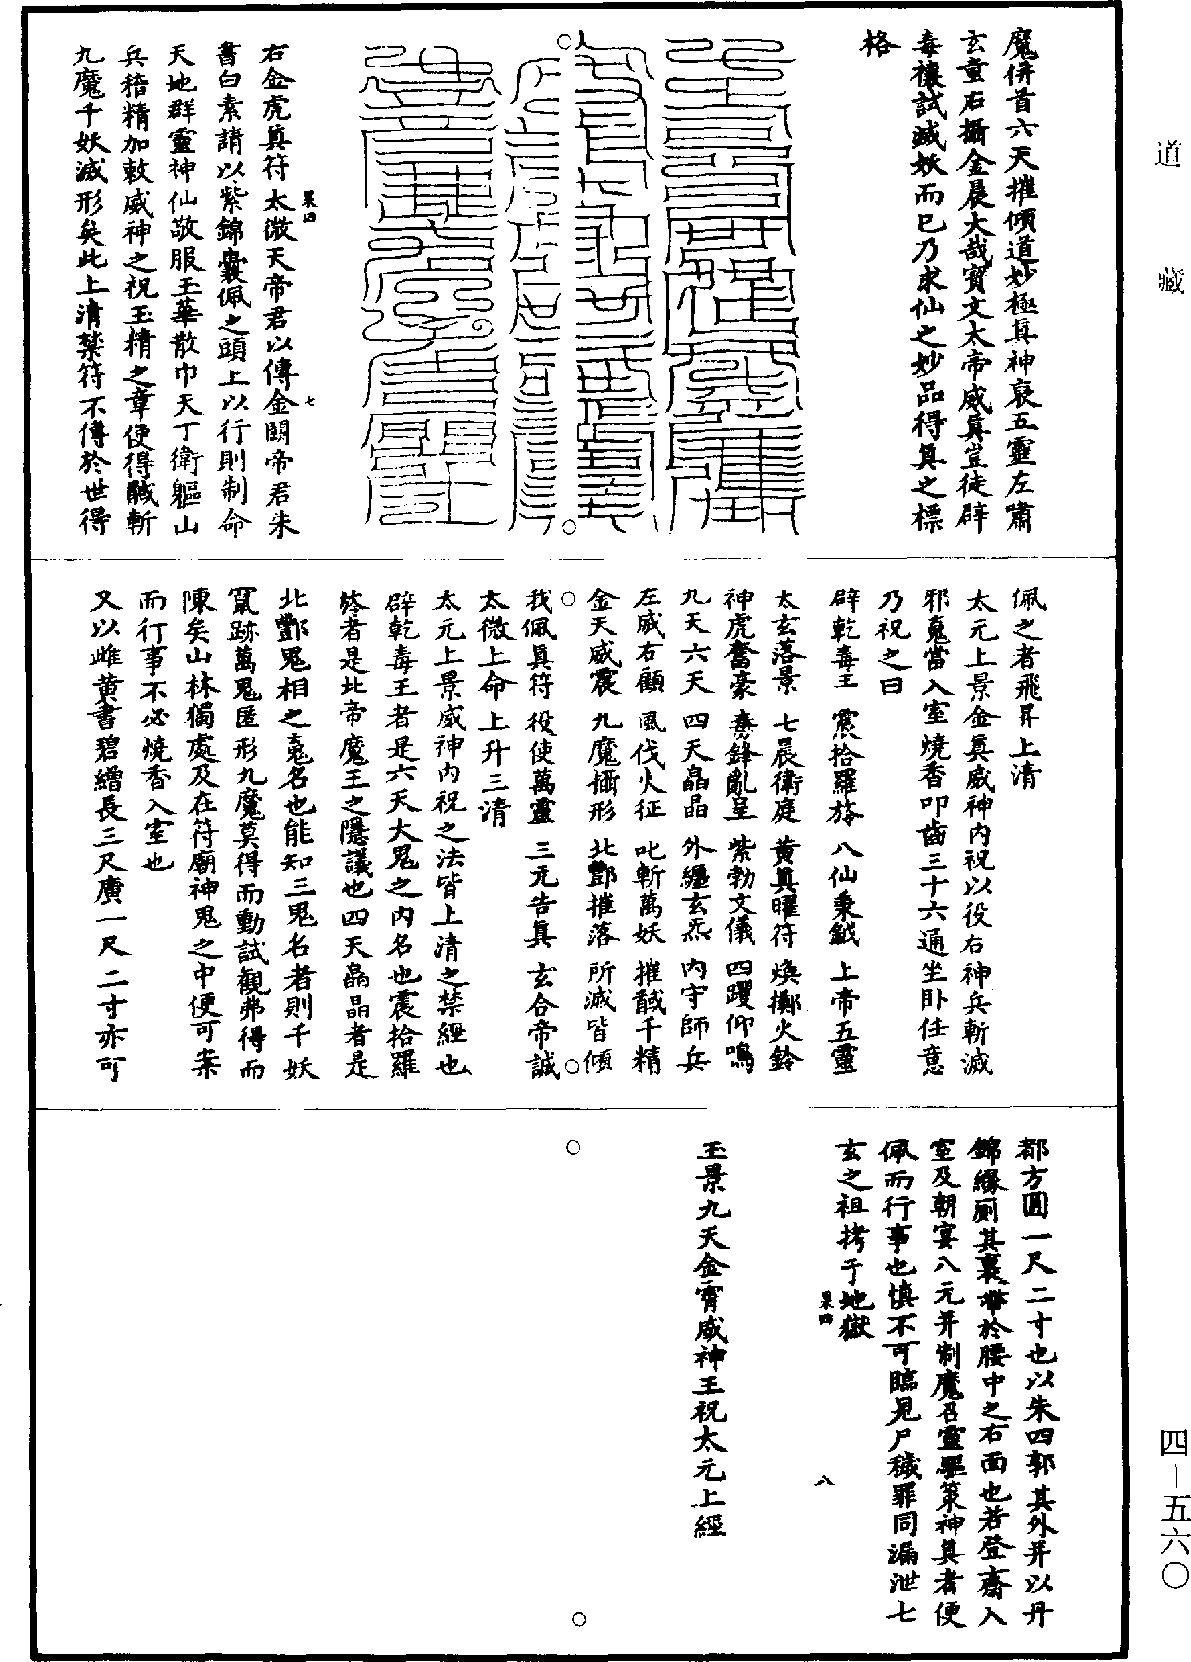 道藏
四—五六〇
魔併首六天摧傾道妙極真神哀五靈左嘯
玄童右攝金晨大哉寶文太帝威真豈徒辟
毒禳試滅妖而已乃求仙之妙品得真之標
格
右金虎真符太微天帝君以傳金闕帝君朱
書白素請以紫錦囊佩之頭上以行則制命
天地群靈神仙敬服玉華散巾天丁衛軀山
兵稽精加敕威神之祝玉精之章便得馘斬
九魔千妖滅形矣此上清禁符不傳於世得
果四
七
佩之者飛昇上清
太元上景金真威神內祝以役右神兵斬滅
邪鬼當入室燒香叩齒三十六通坐臥任意
乃祝之曰
辟乾毒王 震拾羅䇶 八仙秉鉞 上帝五靈
太玄落景 七晨衛庭 黃真曜符 煥擲火鈴
神虎奮豪 毒鋒亂呈 紫勃文儀 四躍仰鳴
九天六天 四天畾晶 外纏玄炁 內守師兵
左威右顧 風伐火征 叱斬萬妖 摧馘千精
金天威震 九魔攝形 北酆摧落 所滅皆傾
我佩真符 役使萬靈 三元告真 玄合帝誠
太微上命 上升三清
太元上景威神內祝之法皆上清之禁經也
辟乾毒王者是六天大鬼之內名也震拾羅
䇶者是北帝魔王之隱諱也四天畾晶者是
北酆鬼相之鬼名也能知三鬼名者則千妖
竄跡萬鬼匿形九魔莫得而動試觀弗得而
陳矣山林獨處及在符廟神鬼之中便可案
而行事不必燒香入室也
又以雌黃書碧繒長三尺廣一尺二寸亦可
都方圓一尺二寸也以朱四郭其外并以丹
錦緣廁其裏帶於腰中之右面也若登齋入
室及朝宴八元并制魔召靈驅策神真者便
佩而行事也慎不可臨見尸穢罪同漏泄七
玄之祖拷于地獄
果四
八
玉景九天金霄威神王祝太元上經